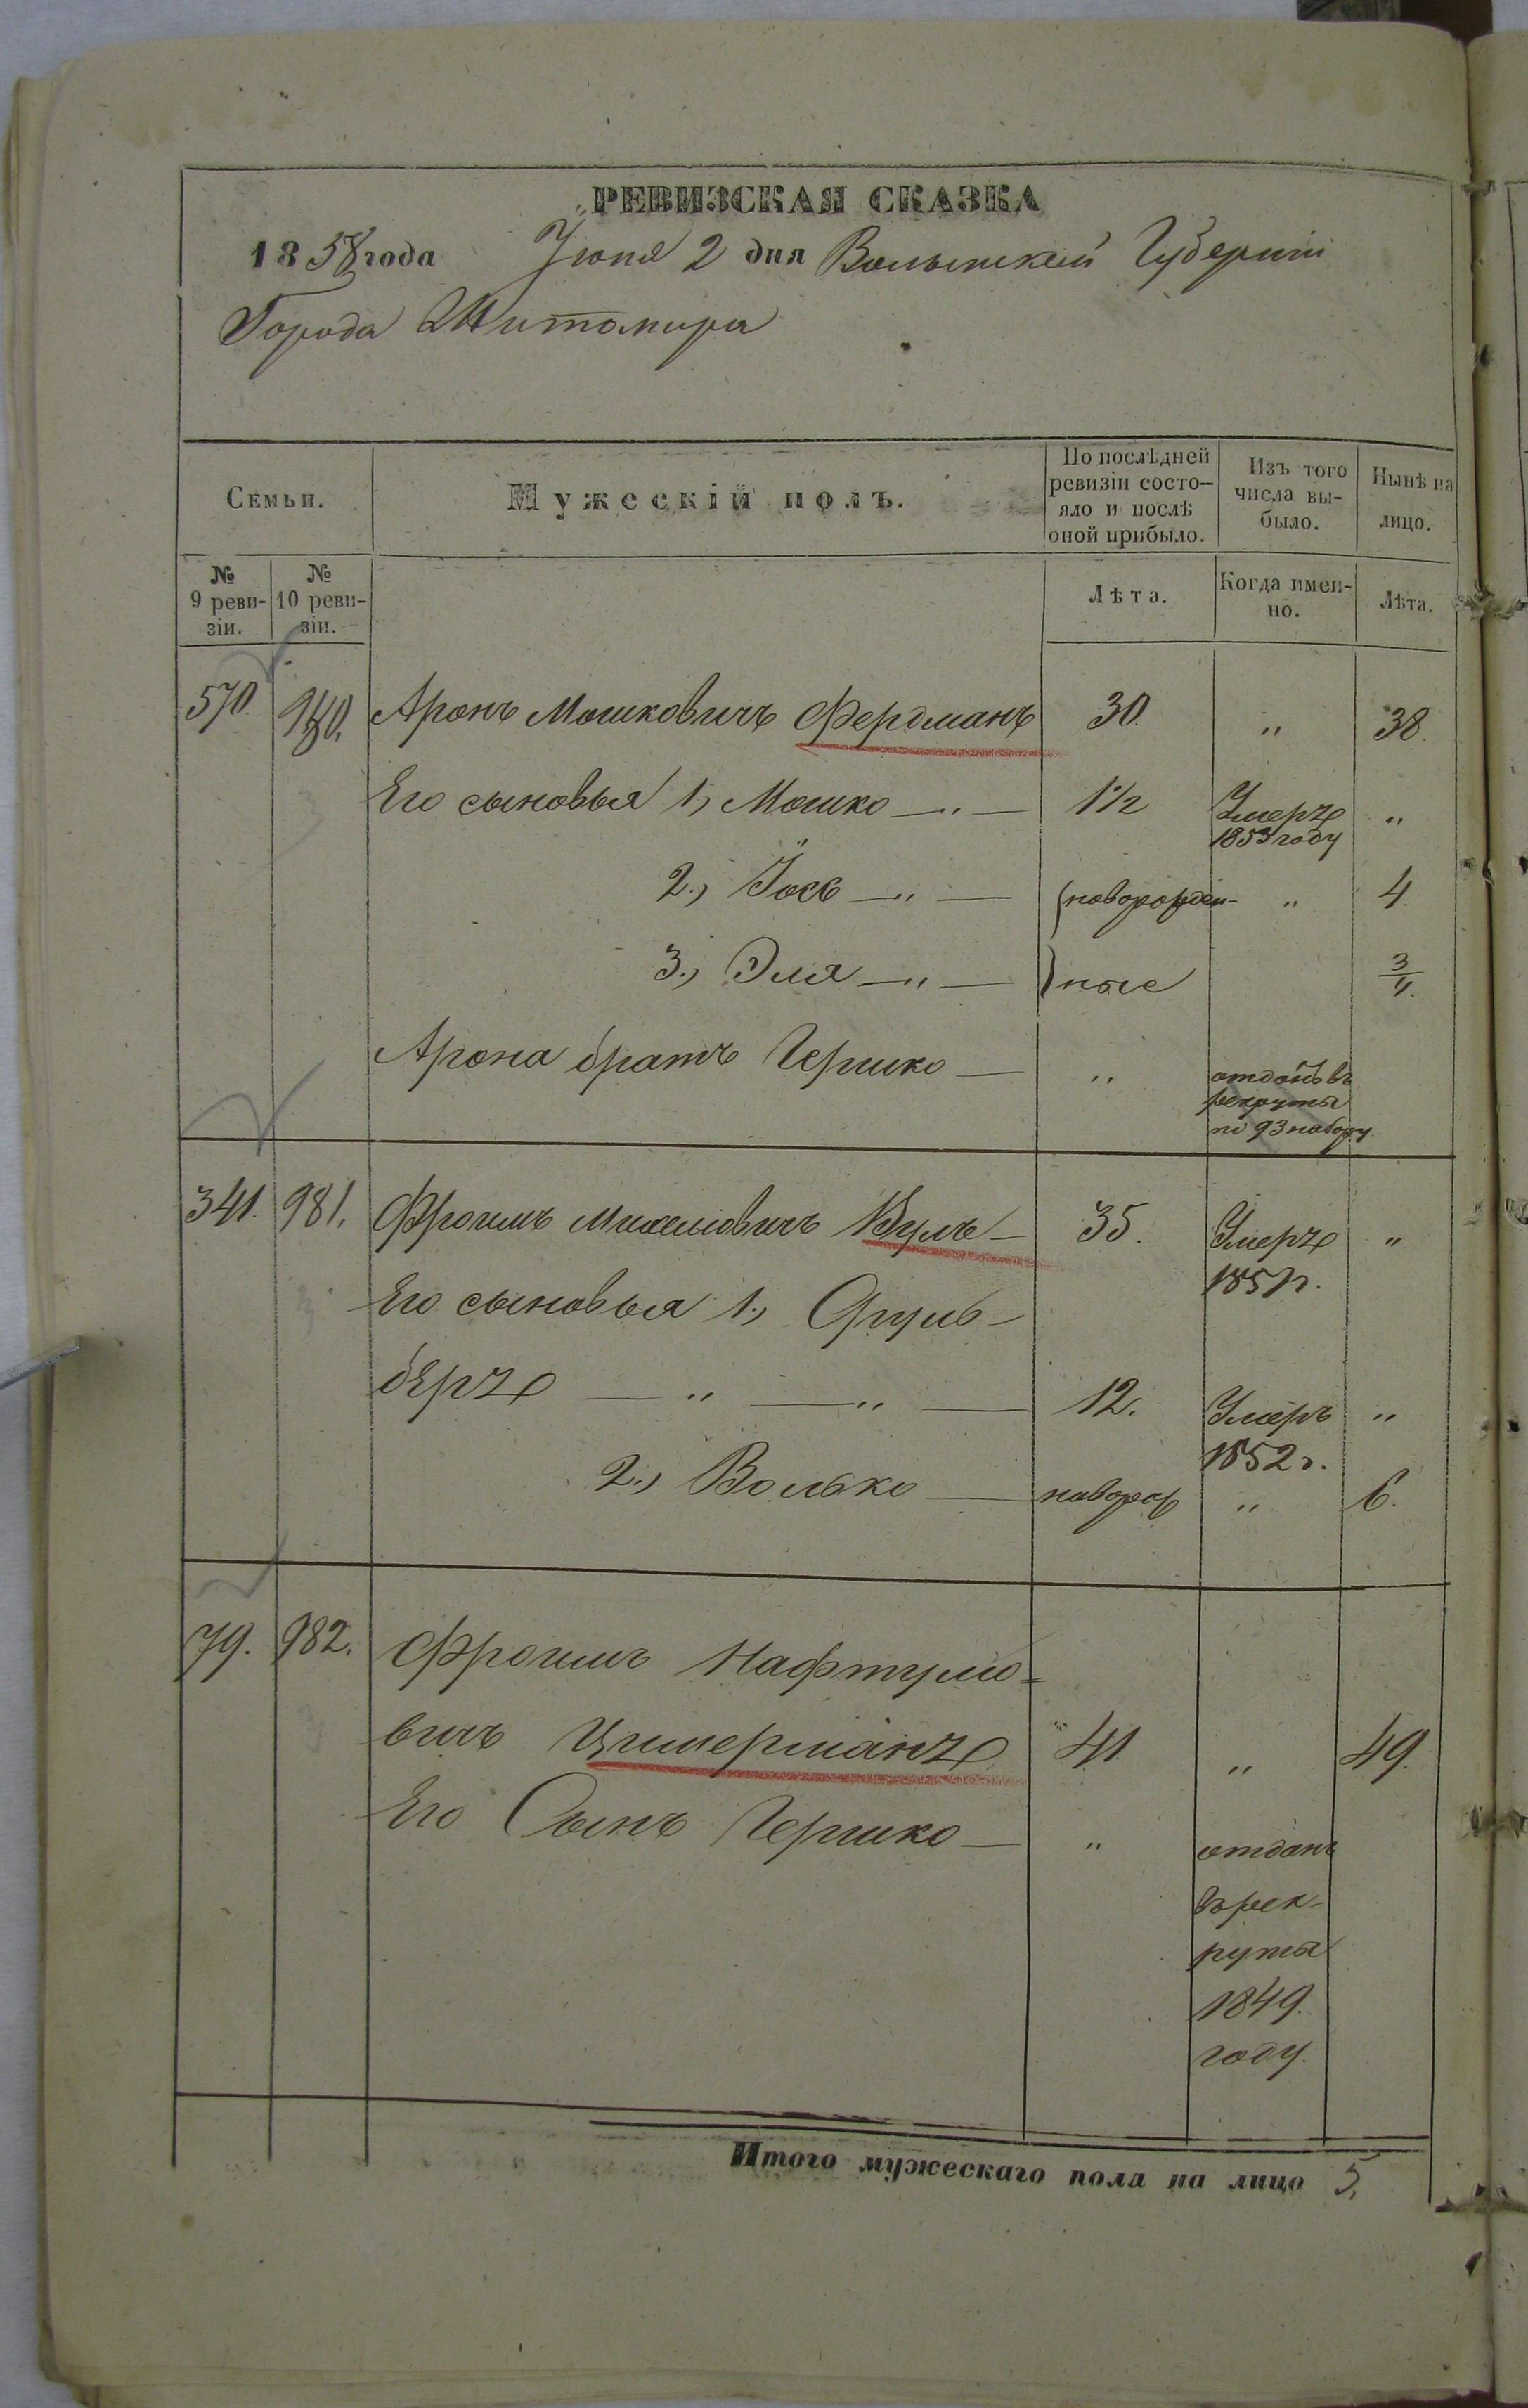 РЕВИЗСКАЯ СКАЗКА
1858 года Іюня 2 дня Волынской Губерніи
Города Житомира
Семьи.
Мужескій полъ.
По послѣдней ревизіи состо-
яло и послѣ
оной прибыло.
Изъ того
числа вы-
было.
Нынѣ на
лицо.
№
9 реви-
зіи.
№
10 реви-
зіи.
Лѣта.
Когда имен-
но.
Лѣта.
570. 980. Аронъ Мошковичъ Фердманъ 30. " 38.
Его сыновья 1, Мошко —"— 1½ Умеръ 1853 году "
2., Іось —"— новорожден- " 4.
3., Эля —"— ные 3/4.
Арона братъ Гершко — " отданъ въ
рекруты
по 93 набору
341. 981. Фроимъ Михелиовичъ — 35. Умеръ "
1857г.
Его сыновья 1.,
беръ —"—"— 12. Умеръ "
1852г.
2., Волько — новорож " 6.
79. 982. Фроимъ Нафтуло=
вичъ Цимерманъ 41. " 49.
Его Сынъ Гершко — " отданъ
въ рек-
руты
1849.
году.
Итого мужескаго пола на лицо 5,